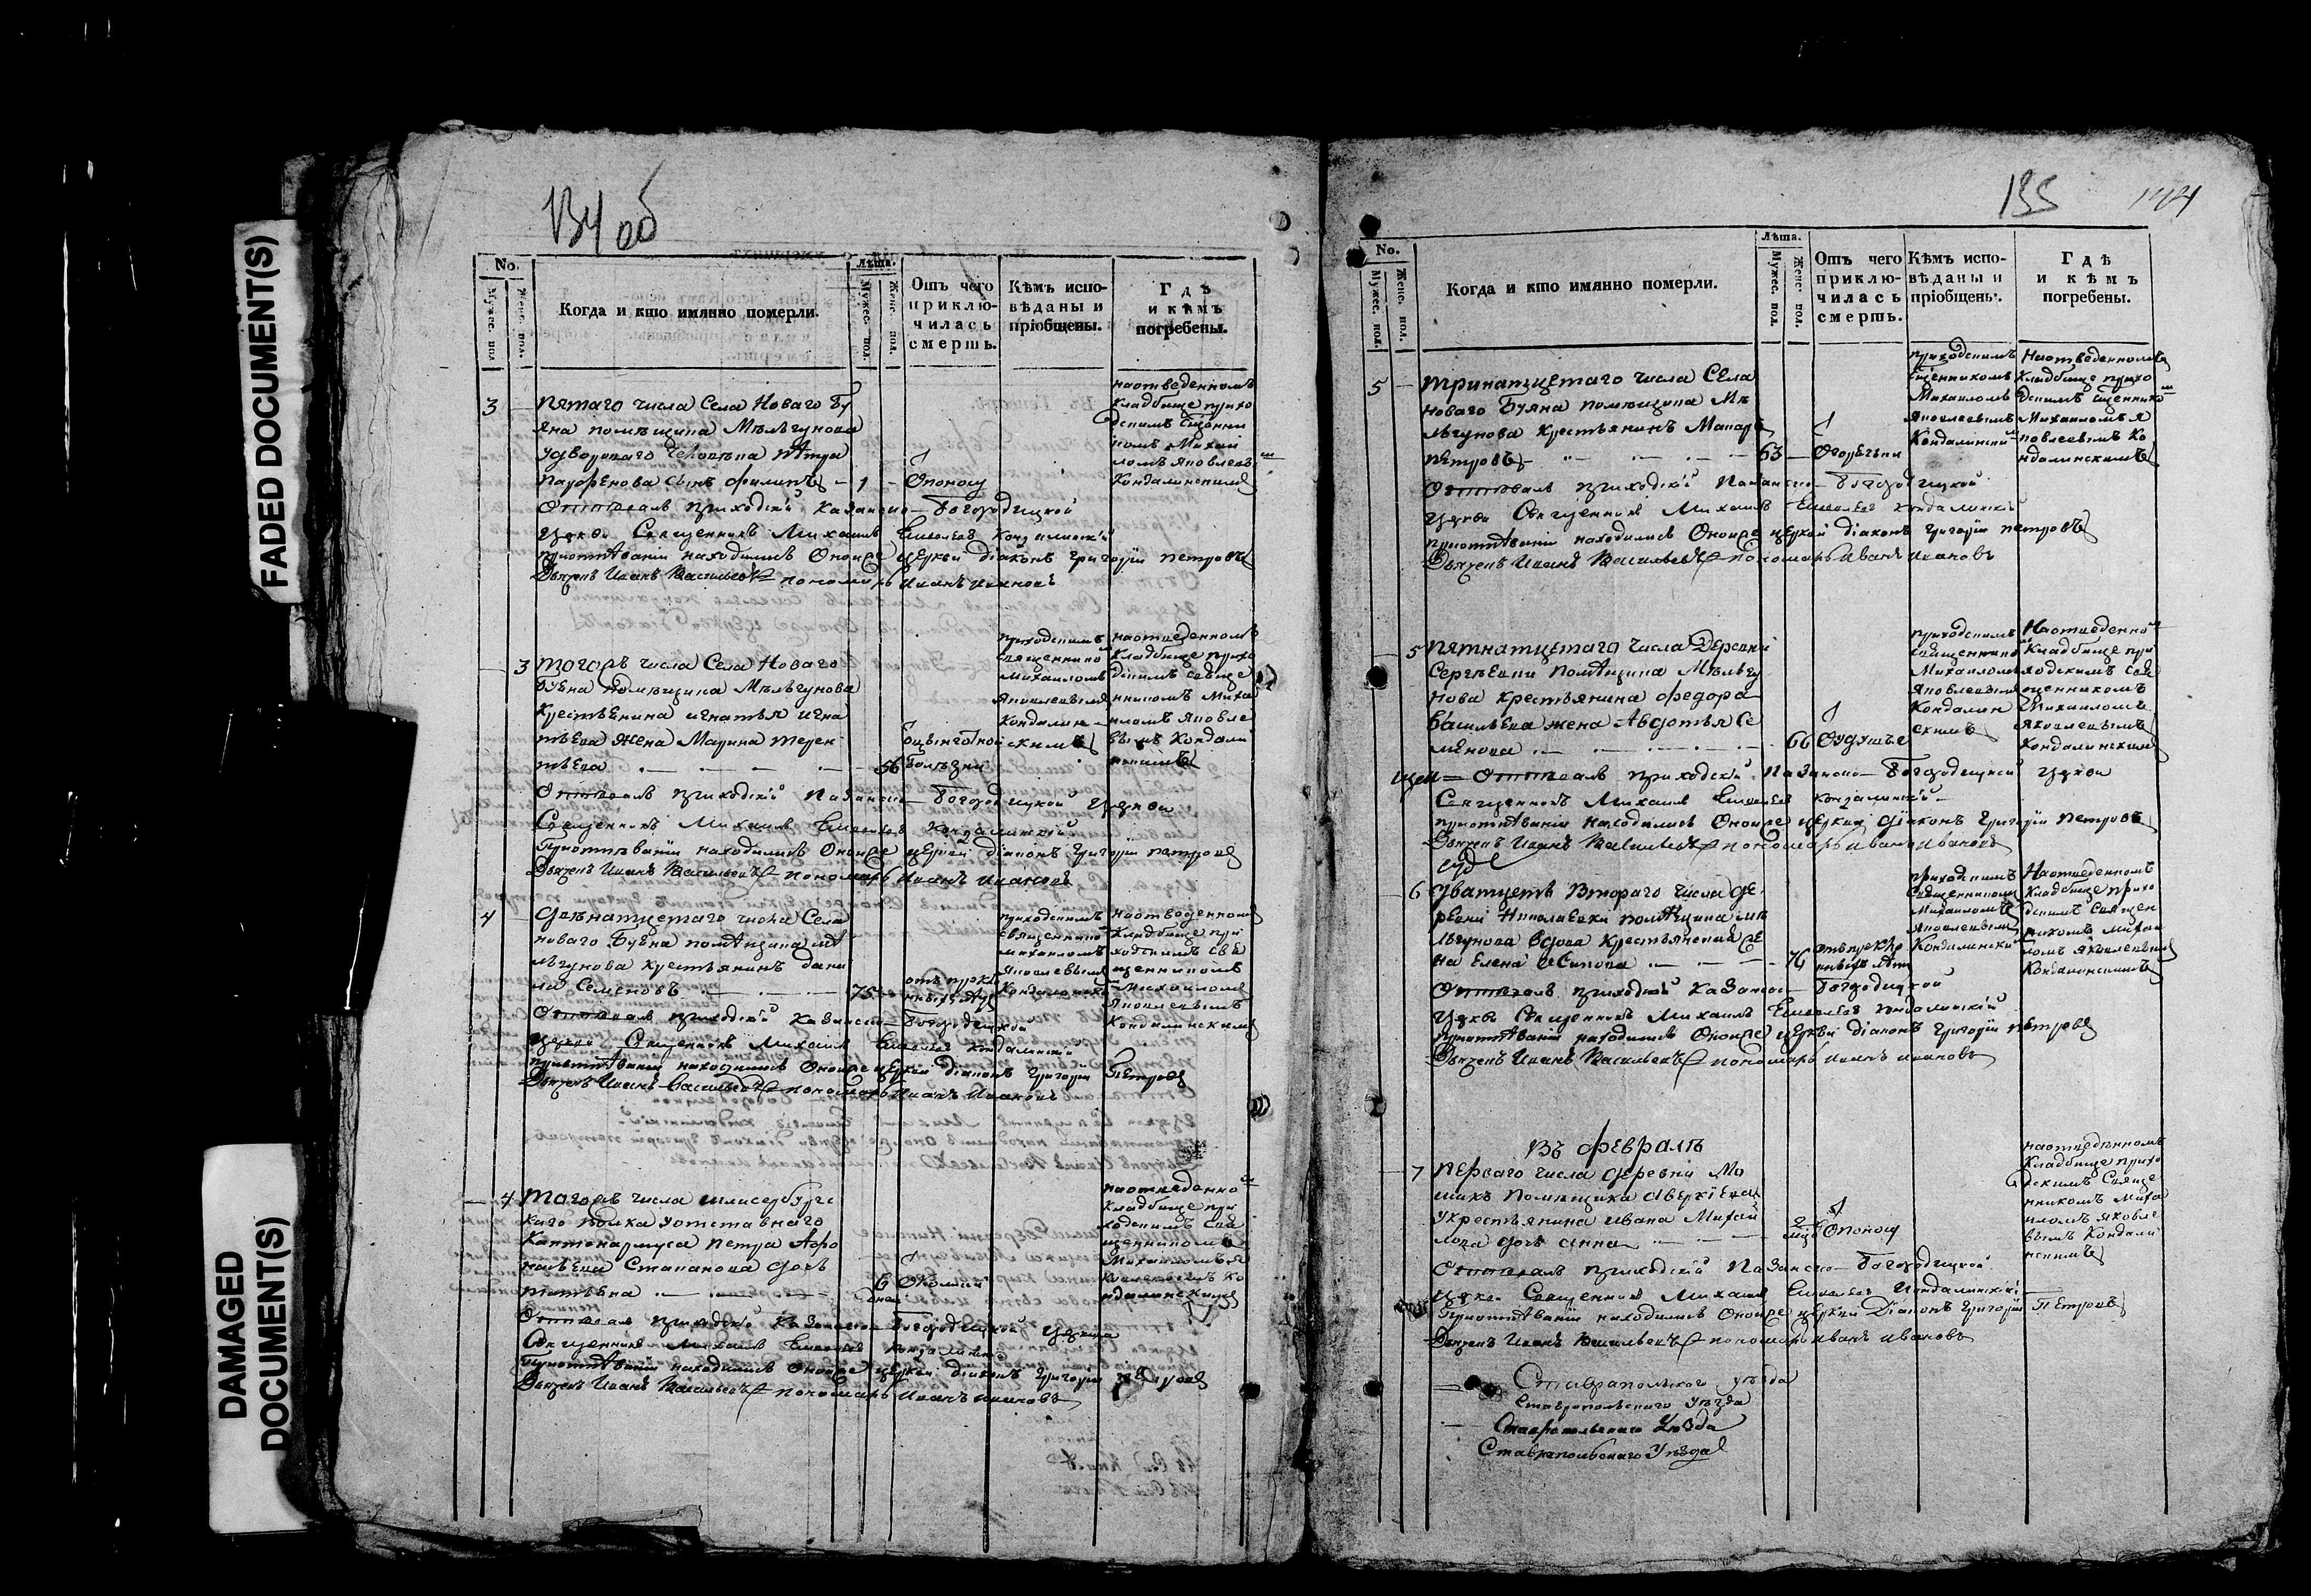 FADED DOCUMENT(S)
DAMAGED DOCUMENT(S)
134 об
No.
Мужес. пол
Женс. пол.
Когда и кто имянно померли.
Лѣта.
Мужес. пол.
Женс. пол.
Отъ чего приклю- чилась смерть.
Кѣмъ испо- вѣданы и пріобщены.
Гдѣ и кѣмъ погребены.
3
пятаго числа Села Новаго Бу
яна помѣщика Мѣльгунова
удвороваго человѣка Петра
Парфенова сынъ Филипъ 1
Опоносу
наотведенномъ
кладбище прихо
дскимъ
номъ Михаи
ломъ Яковлевы
Кондалинскимъ
Отпевалъ приходскій Казанско-Богородицкой
Церкви Священникъ Михаилъ Кондалинскій
приотпѣваніи находились Оноиже церкви діаконъ Григорій Петровъ
Дьячекъ Иванъ Васильевъ пономарь Иванъ Ивановъ
3
тогожъ числа Села Новаго
Буяна помѣщика Мѣльгунова
Крестьянина Игнатья Игна
тьева жена Марина Терен
тьева 56
оцынготной
болѣзни
приходскимъ
священнико
Михаиломъ
Яковлевымъ
Кондалин
скимъ
наотведенномъ
Кладбище прихо
дскимъ свяще
нникомъ Миха
иломъ Яковле
вымъ Кондали
нскимъ
Отпевалъ приходскій Казанско-Богородицкой Церкви
Священникъ Михаилъ Кондалинскій
Приотпѣваніи находились Оноиже церкви діаконъ Григорій Петровъ
Дьячекъ Иванъ Васильевъ пономарь Иванъ Ивановъ
4
двѣнатцетаго числа Села
новаго Буяна помѣщика Мѣ
льгунова крестьянинъ Дани
ла Семеновъ 75
приходскимъ
священнико
михаиломъ
Яковлевымъ
Кондалински
наотведенномъ
Кладбище при
ходскимъ свя
щенникомъ
Михаиломъ
Яковлевымъ
Кондалинскимъ
Отпевалъ приходскій Казанско-Богородицкой
Церкви Священникъ Михаилъ Кондалинскій
приотпѣваніи находились Оноиже церкви діаконъ Григорій Петровъ
Дьячекъ Иванъ Васильевъ пономарь Иванъ Ивановъ
4
тогожъ числа шлисербургс
каго полка уотставнаго
Каптенармуса Петра Афо
насьева Степанова дочь
Татьяна 6
дней
наотведенно
Кладбище при
ходскимъ свя
щенникомъ
Михаиломъ Я
ковлевымъ Ко
ндалинскимъ
Отпевалъ приходскій Казанско-Богородицкой Церкви
Священникъ Михаилъ Кондалинскій
Приотпѣваніи находились Оноиже церкви діаконъ Григорій
Дьячекъ Иванъ Васильевъ пономарь Иванъ Ивановъ
135
No.
Мужес. пол.
Женс. пол.
Когда и кто имянно померли.
Лѣта.
Мужес. пол.
Женс. пол.
Отъ чего приклю- чилась смерть.
Кѣмъ испо- вѣданы и пріобщены.
Гдѣ и кѣмъ погребены.
5
тринатцетаго числа Села
Новаго Буяна помѣщика Мѣ
льгунова крестьянинъ Макаръ
Петровъ 63
Огорячки
приходскимъ
щенникомъ
Михаиломъ
Яковлевымъ
Кондалински
Наотведенномъ
Кладбище прихо
дскимъ щеннико
Михаиломъ Я
ковлевымъ Ко
ндалинскимъ
Отпевалъ приходскій Казанско-Богородицкой
Церкви Священникъ Михаилъ Кондалинскій
приотпѣваніи находились Оноиже церкви діаконъ Григорій Петровъ
Дьячекъ Иванъ Васильевъ пономарь Иванъ Ивановъ
5
пятнатцетаго числа Деревни
Сергѣевки Помѣщика Мѣльгу
нова крестьянина Федора
Васильева жена Авдотья Се
менова 66
Оудушье
приходскимъ
священнико
Михаиломъ
Яковлевымъ
Кондалин
скимъ
Наотведенно
Кладбище при
ходскимъ свя
щенникомъ
Михаиломъ
Яковлевымъ
Кондалинским
Отпевалъ приходскій Казанско-Богородицкой Церкви
Священникъ Михаилъ Кондалинскій
приотпѣваніи находились Оноиже церкви діаконъ Григорій Петровъ
Дьячекъ Иванъ Васильевъ пономарь Иванъ Ивановъ
6
дватцеть втораго числа де
ревни Николаевки помѣщика Мѣ
льгунова вдова крестьянская же
на Елена Осипова 76
приходскимъ
Священникомъ
Михаиломъ
Яковлевымъ
Кондалински
Наотведенномъ
Кладбище прихо
дскимъ Священ
никомъ Михаи
ломъ Яковлевымъ
Кондалинскимъ
Отпевалъ приходскій Казанско-Богородицкой
Церкви Священникъ Михаилъ Кондалинскій
приотпѣваніи находились Оноиже церкви діаконъ Григорій Петровъ
Дьячекъ Иванъ Васильевъ пономарь Иванъ Ивановъ
Въ Февралѣ
7
перваго числа деревни Мо
шкъ помѣщика Аверкіева
укрестьянина Ивана Михаи
лова дочь Анна 2
Опоносу
наотведенномъ
Кладбище прихо
дскимъ Свяще
нникомъ Миха
иломъ Яковле
вымъ Кондали
нскимъ
Отпевалъ приходскій Казанско-Богородицкой
Церкви Священникъ Михаилъ Кондалинскій
Приотпѣваніи находились Оноиже церкви Діаконъ Григорій Петровъ
Дьячекъ Иванъ Васильевъ пономарь Иванъ Ивановъ
Ставропольского уѣзда
Ставропольскаго Уѣзда
Ставропольскаго Уѣзда
Ставропольскаго Уѣзда